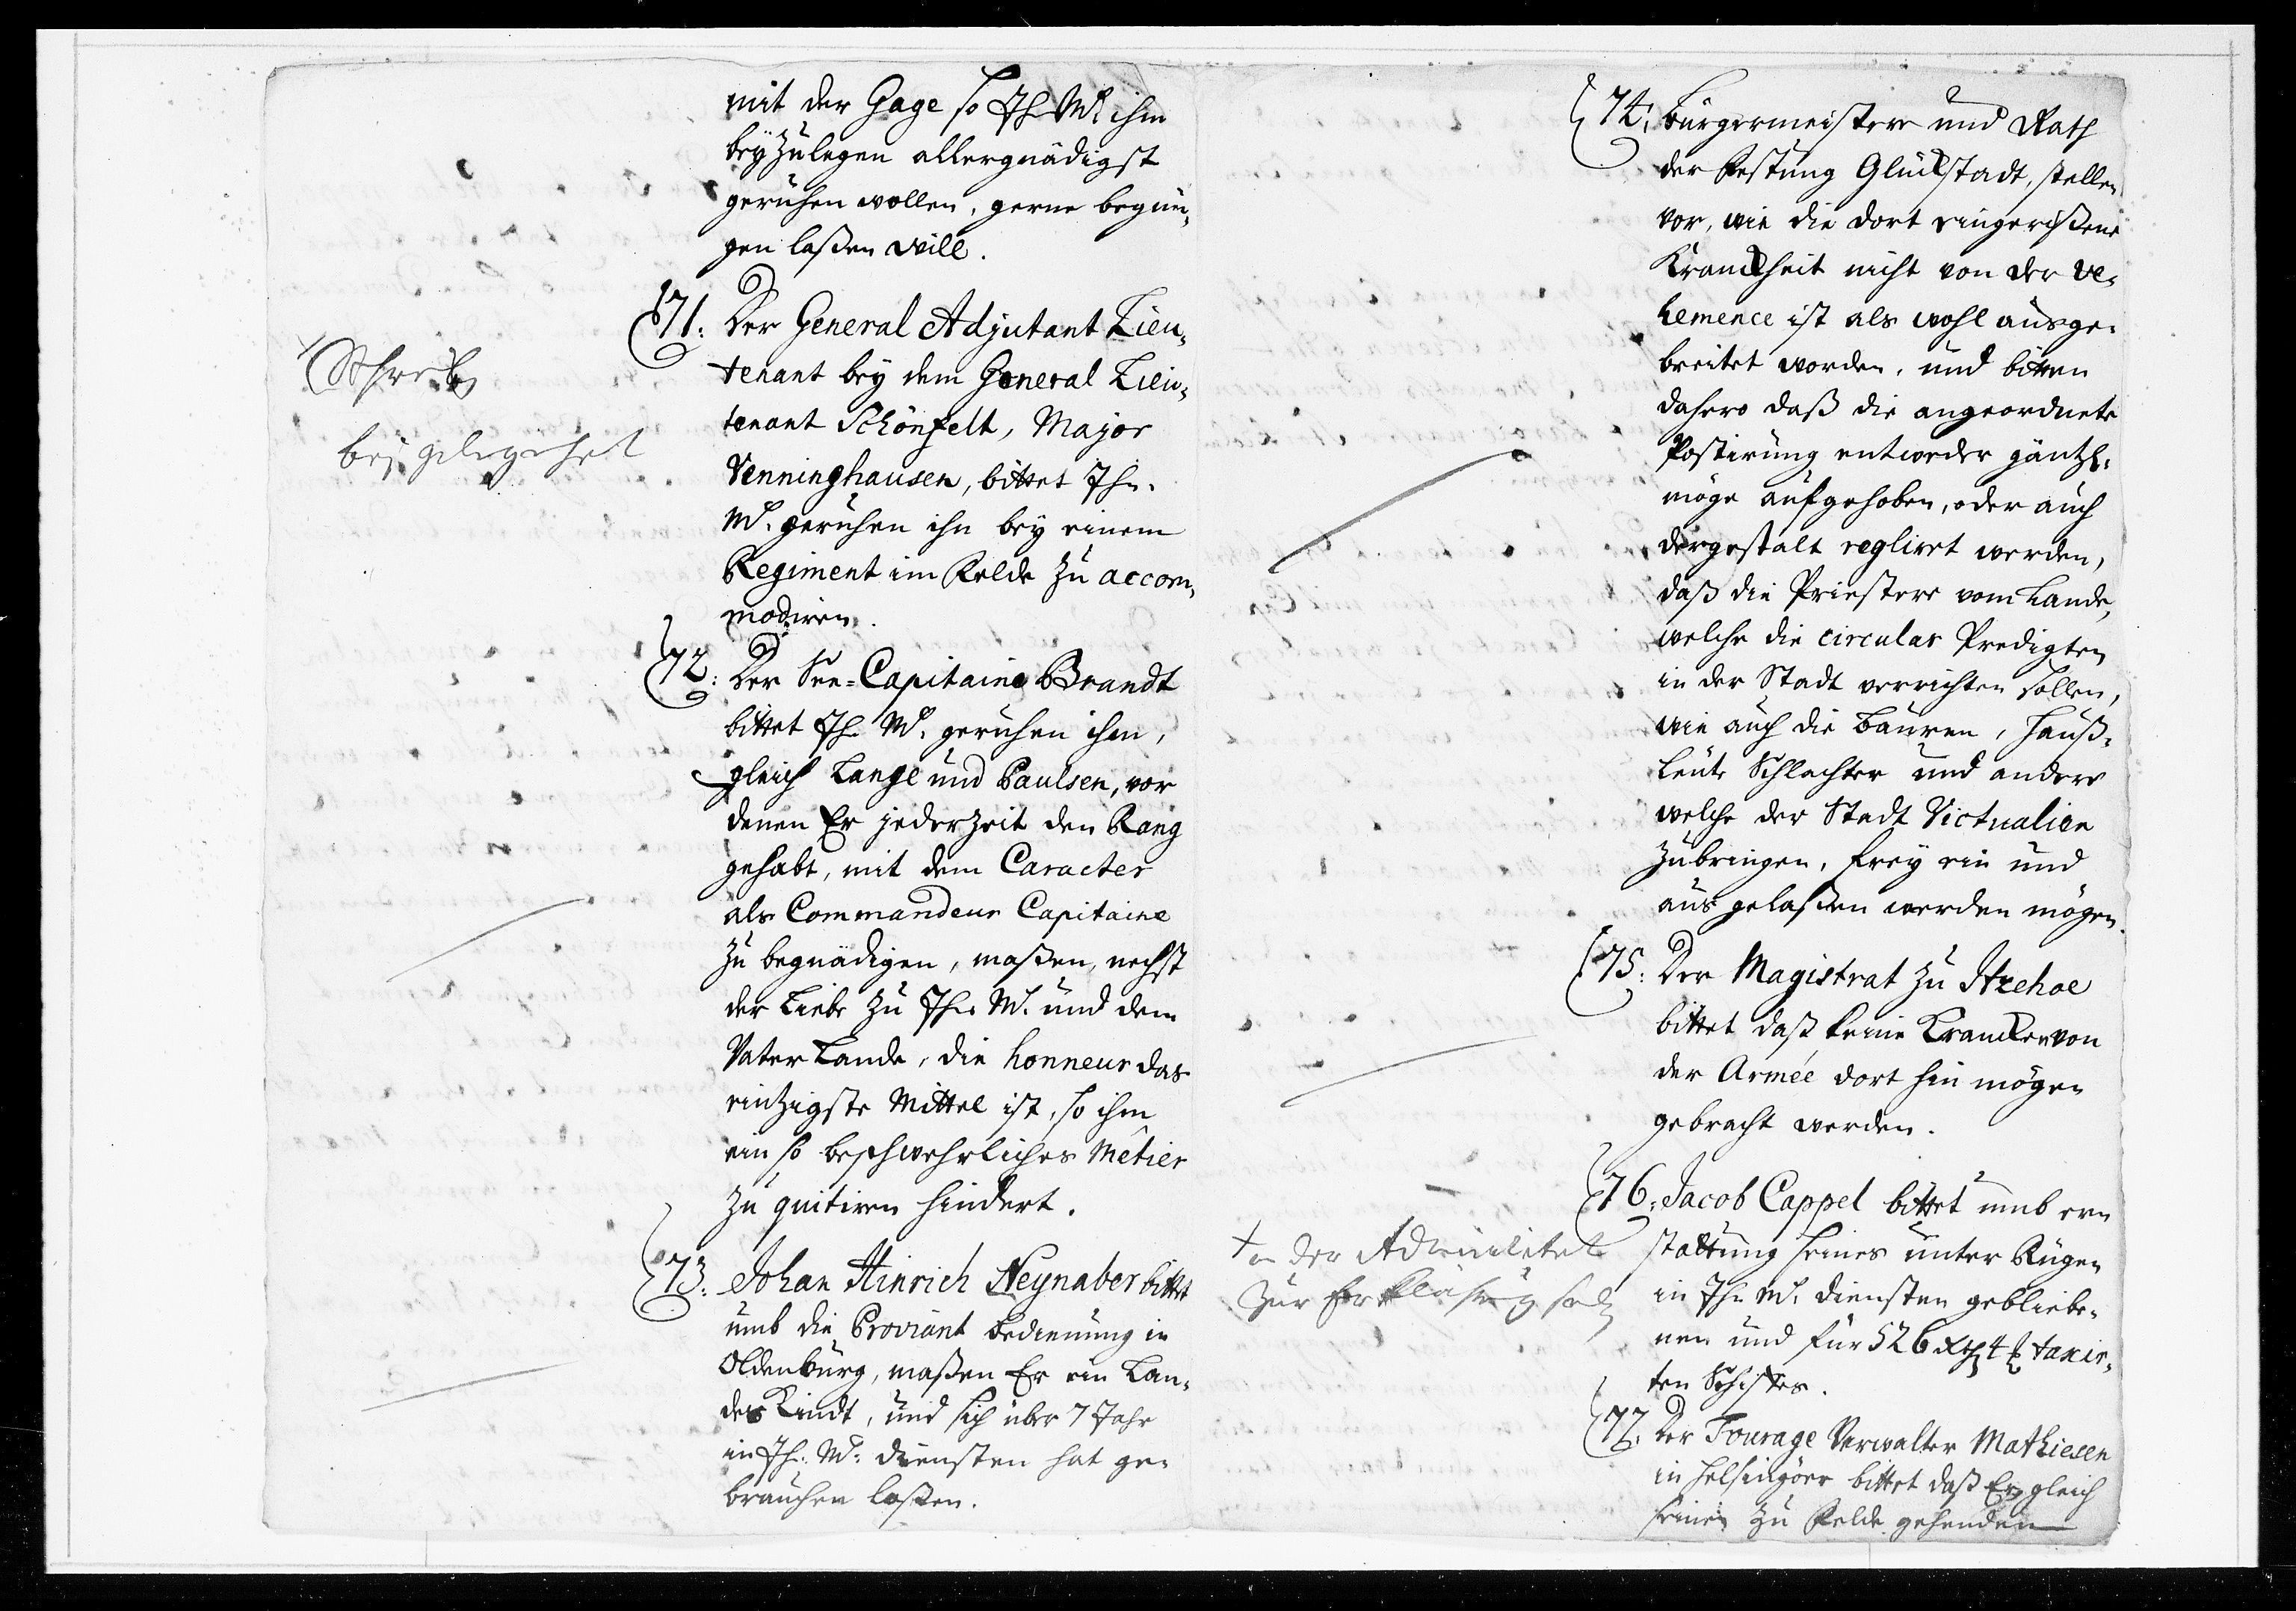 mit der Gage so Ih. Mt. ihm
beyzulegen allergnädigst
geruhen wollen, gerne begnü,
gen laßen will.
71. Der General Adjutant Lieu,
tenant bey dem General Lieu,
tenant Schönfelt, Major
Venninghausen, bittet Ihr.
Mt. geruhen ihn bey einem
Regiment im Felde zu accom,
modiren.
bey gelegenheit
72. Der See-Capitaine Brandt
bittet Ih. Mt. geruhen ihm,
gleich Lange und Paulsen, vor
denen Er jederzeit den Rang
gehabt, mit dem Caracter
als Commandeur Capitaine
zu begnädigen, maßen, nechst
der Liebe zu Ihr. Mt. und dem
Vater Lande, die honneur das
eintzigste Mittel ist, so ihm
ein so beschwehrliches Métier
zu quitiren hindert.
73. Johan Hinrich Neynaber bittet
umb die Proviant bedienung in
Oldenburg, maßen Er ein Lan,
des Kindt, und sich über 7 Jahr
in Ih. Mt. diensten hat ge,
brauchen laßen.
74. Bürgermeistere und Rath
der Festung Glückstadt, stellen
vor, wie die dort eingerißene
Kranckheit nicht von der ve,
hemence ist als wohl ausge,
breitet worden, und bitten
dahero daß die angeordnete
Postirung entweder gäntzl.
möge aufgehoben, oder auch
dergestalt regliret werden,
daß die Priestere vom Lande,
welche die circular Predigten
in der Stadt verrichten sollen,
wie auch die Bauren, Hauß,
leute Schlachter und andere
welche der Stadt Victualien
zubringen, frey ein und
aus gelaßen werden mögen.
75. Der Magistrat zu Itzehoe
bittet daß keine Krancken von
der Armée dort hin mögen
gebracht werden.
76. Jacob Cappel bittet umb er,
stattung seines unter Rügen
in Ihr. Mt. diensten gebliebe,
nen und für 526 Rth 4 ß taxir,
ten Schiffes.
+ an der Admiralitet
zur Erklährung
77. Der Fourage Verwalter Mathiesen
in Helsingöer bittet daß Er gleich
seinen zu Felde gehenden